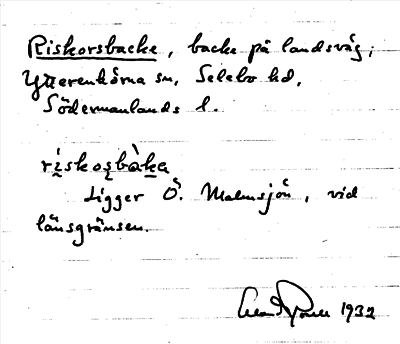 Riskorsbacke, backe på landsväg,
Ytterenhörna sn, Selebo hd,
Södermanlands l.
rìskosbàka
Ligger Ö. Malmsjön, vid
länsgränsen.
1932